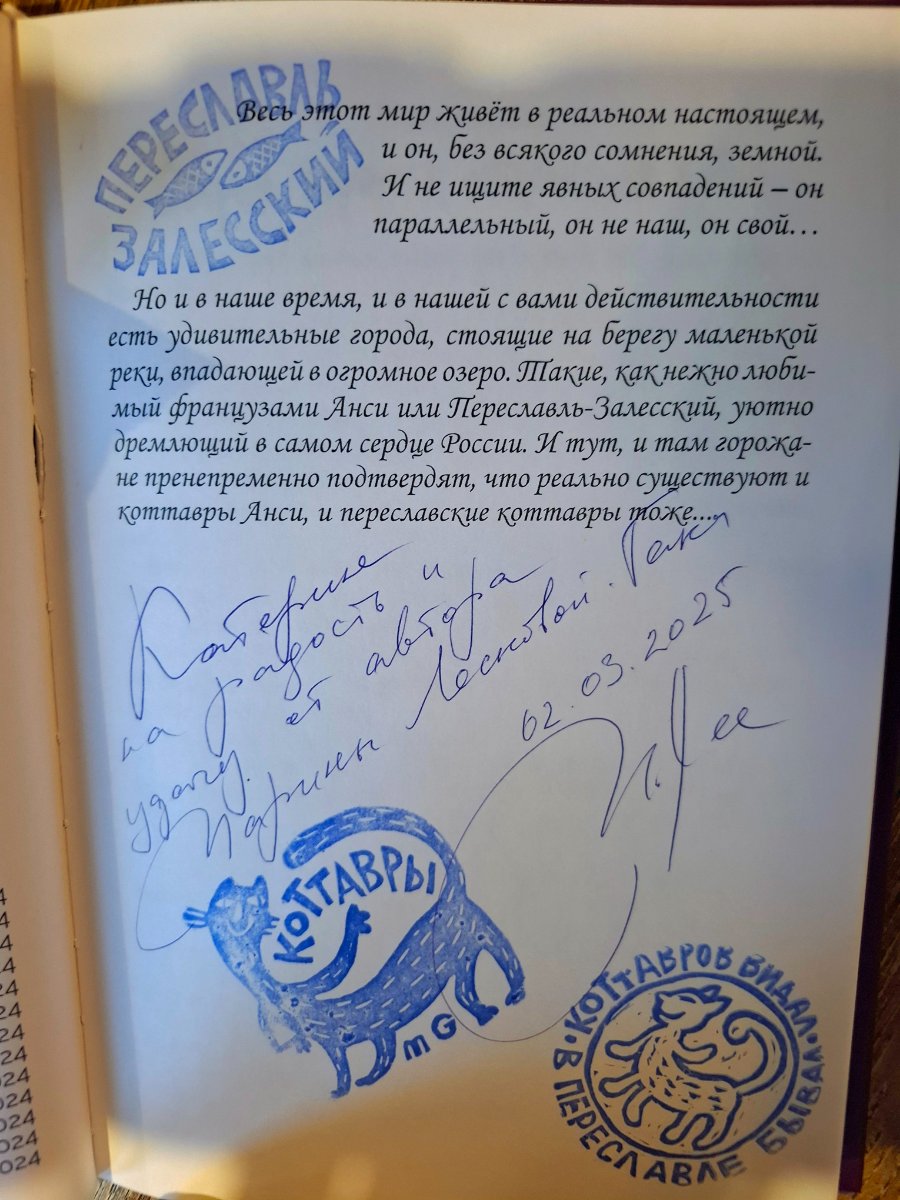 ПЕРЕСЛАВЛЬ
ЗАЛЕССКИЙ
Весь этот мир живёт в реальном настоящем,
и он, без всякого сомнения, земной.
И не ищите явных совпадений – он
параллельный, он не наш, он свой...
Но и в наше время, и в нашей с вами действительности
есть удивительные города, стоящие на берегу маленькой
реки, впадающей в огромное озеро. Такие, как нежно люби-
мый французами Анси или Переславль-Залесский, уютно
дремлющий в самом сердце России. И тут, и там горожа-
не пренепременно подтвердят, что реально существуют и
коттавры Анси, и переславские коттавры тоже...
Катерине
на радость и
удачу от автора
Марины
02.03.2025
КОТТАВРЫ
mG
КОТТАВРОВ ВИДАЛ
В ПЕРЕСЛАВЛЕ БЫВАЛ
24
24
24
24
24
24
024
024
024
024
024
2024